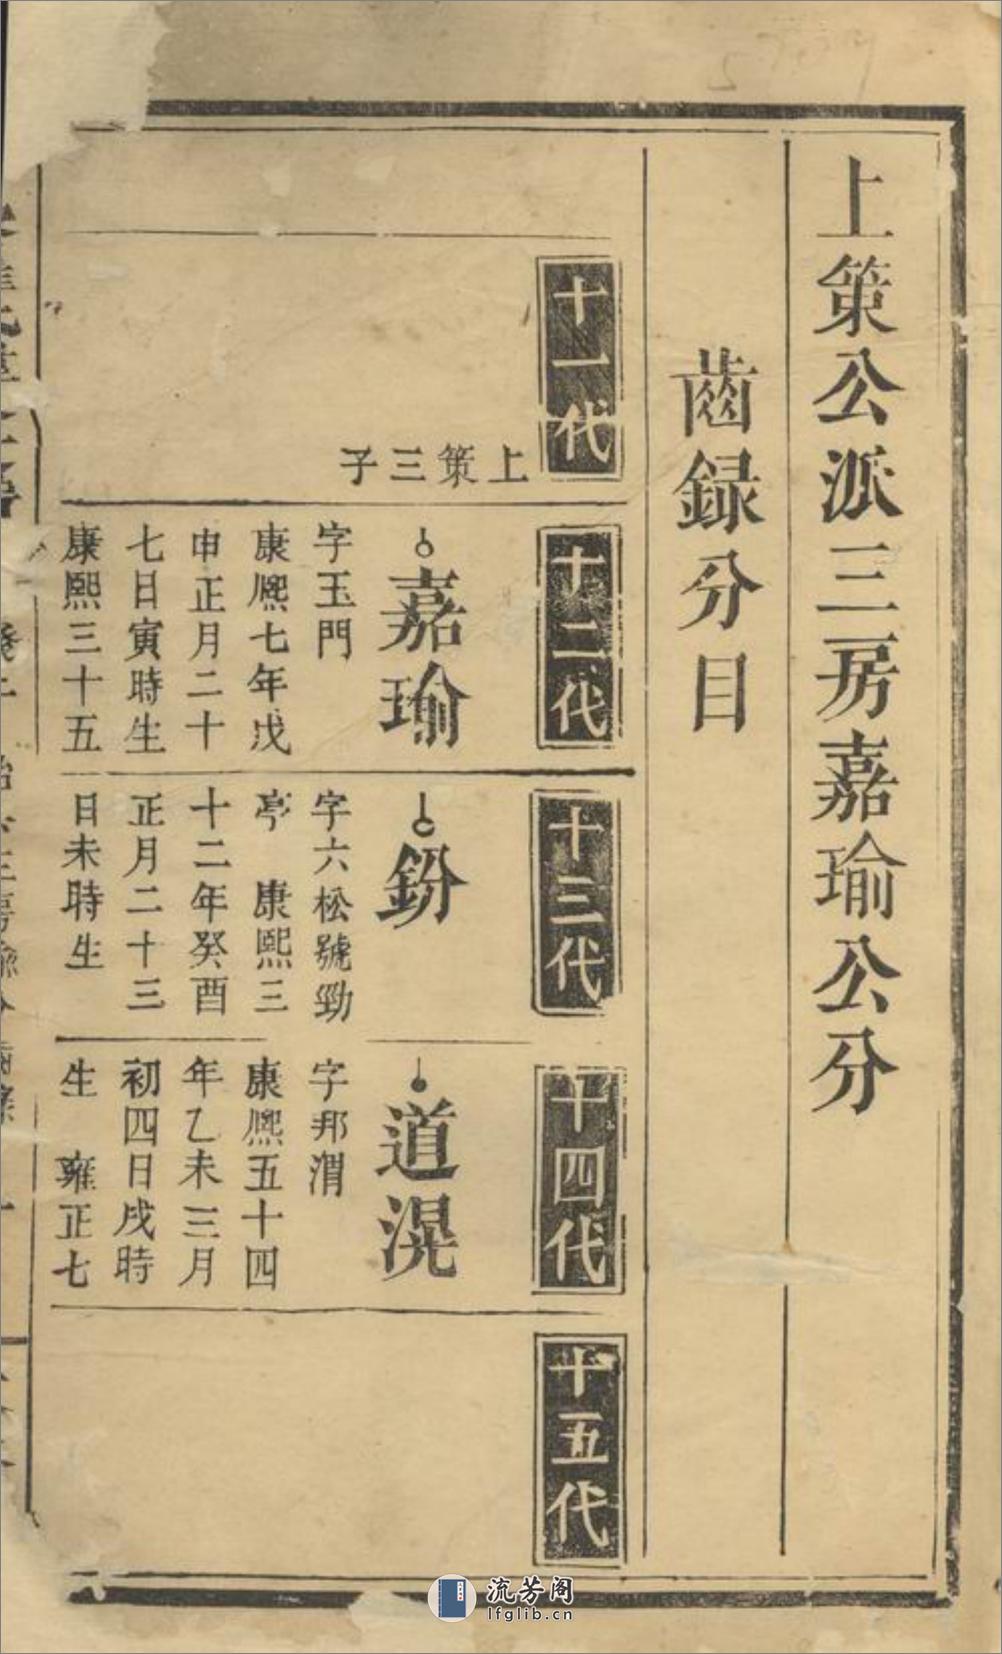 上策公派三房嘉瑜公分
齒録分目
十一代
上策三子
十二代
嘉瑜
字玉門
康熙七年戊
申正月二十
七日寅時生
康熙三十五
十三代
鈖
字六松號勁
亭 康熙三
十二年癸酉
正月二十三
日未時生
十四代
道滉
字邦渭
康熙五十四
年乙未三月
初四日戌時
生 雍正七
十五代
流芳阁
lfglib.cn